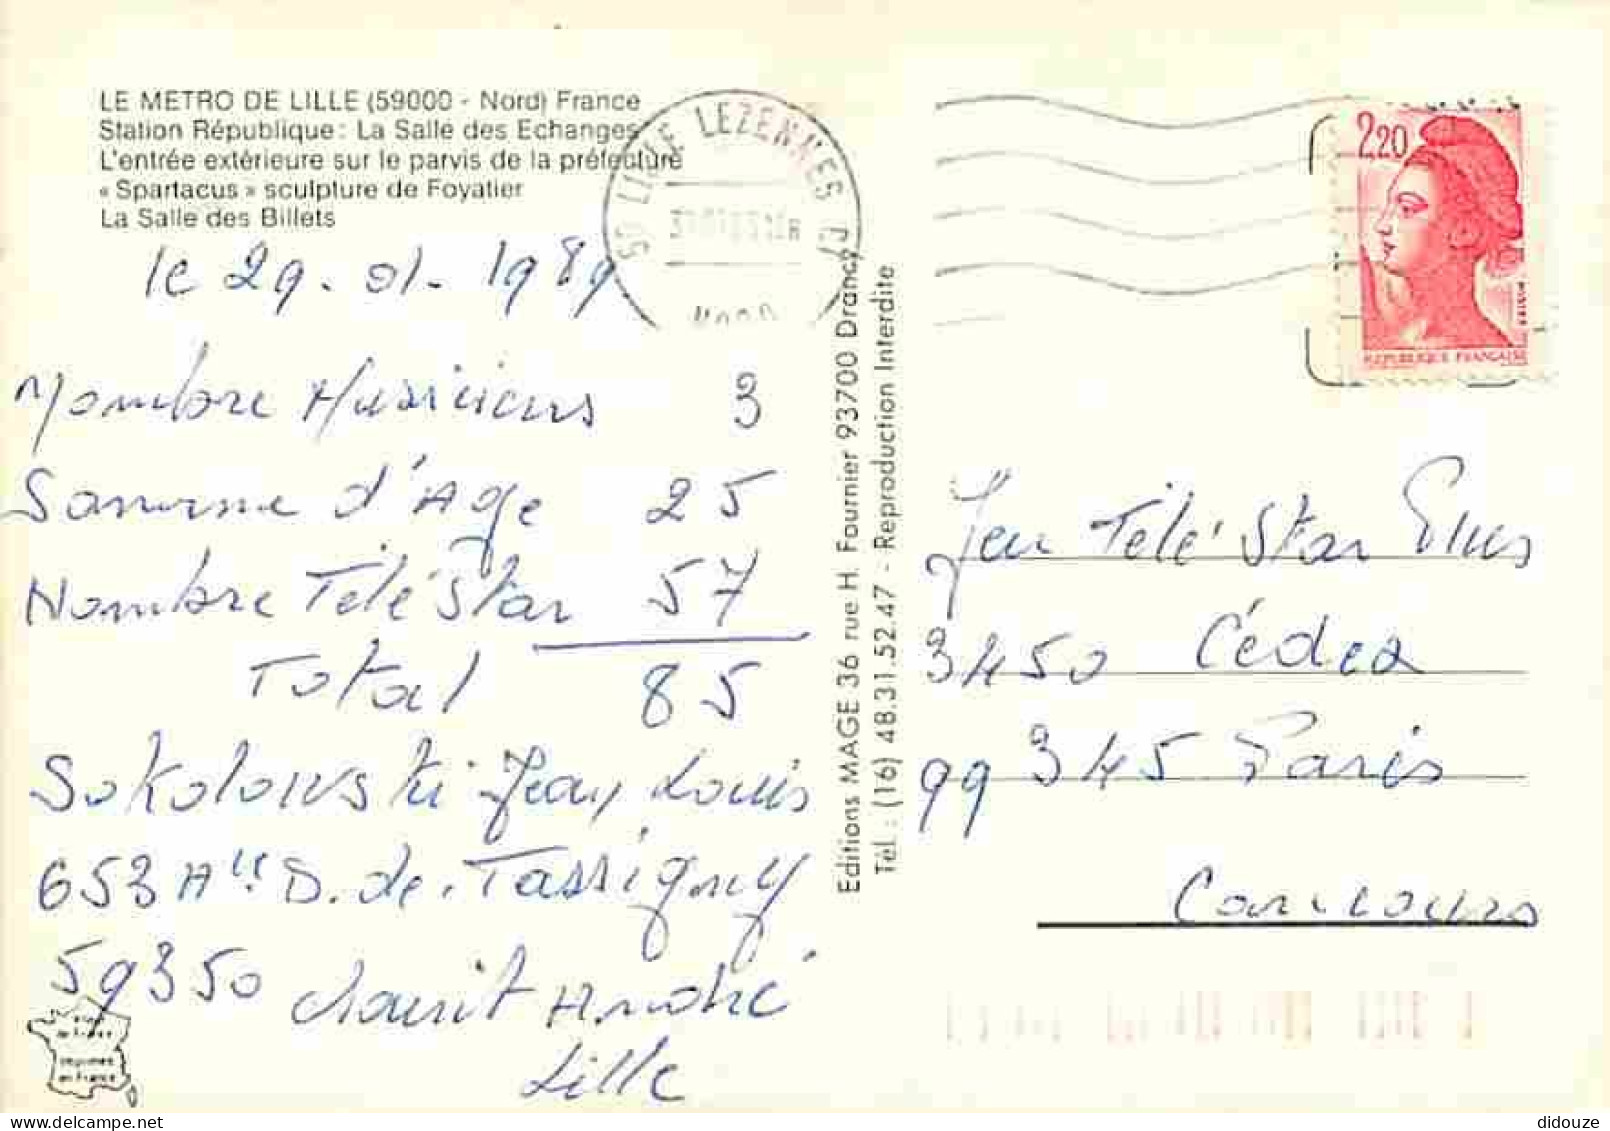 LE METRO DE LILLE (59000 - Nord) France
Station République : La Salle des Echanges
L'entrée extérieure sur le parvis de la préfecture
« Spartacus » sculpture de Foyatier
La Salle des Billets
59 LILLE LEZENNES
NORD
2,20
REPUBLIQUE FRANÇAISE
le 29 - 01 - 1989
Nombre Musiciens 3
Somme d'Age 25
Nombre Télé Star 57
Total 85
Sokolowski Jean Louis
653 A D. de Tassigny
59350 Saint André
Lille
Editions MAGE 36 rue H. Fournier 93700 Drancy
Tél. : (16) 48.31.52.47 - Reproduction Interdite
Jeu Télé Star Plus
3450 Cédex
99 345 Paris
Concours
imprimés
en France
didouze